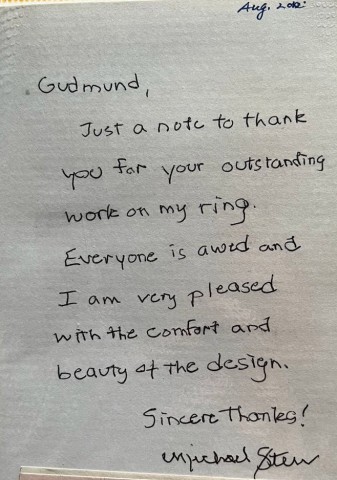 Aug. 2012
Gudmund,
Just a note to thank
you for your outstanding
work on my ring.
Everyone is awed and
I am very pleased
with the comfort and
beauty of the design.
Sincere Thanks!
Michael